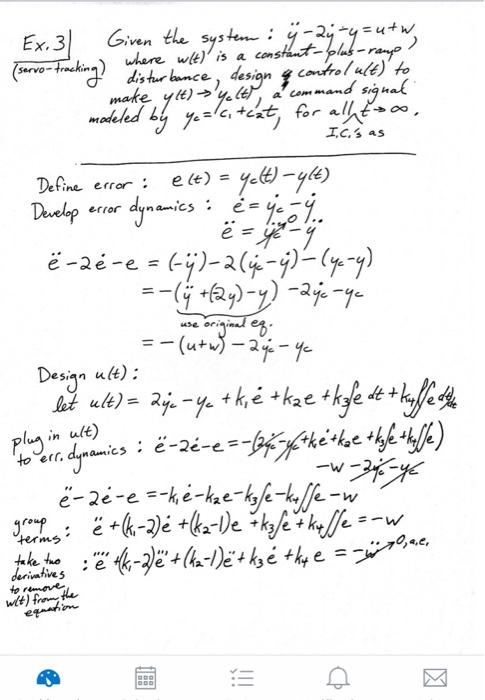 Ex. 3
(servo-tracking)
Given the system: ÿ - 2ẏ - y = u + w,
where w(t) is a constant-plus-ramp
disturbance, design a control u(t) to
make y(t) → yc(t), a command signal
modeled by yc = c₁ + c₂t, for all I.C.'s as t → ∞.
Define error: e(t) = yc(t) - y(t)
Develop error dynamics: ė = ẏc - ẏ
ë = ÿc⁰ - ÿ
ë - 2ė - e = (-ÿ) - 2(ẏc - ẏ) - (yc - y)
= -(ÿ + (-2ẏ) - y) - 2ẏc - yc
use original eq.
= -(u + w) - 2ẏc - yc
Design u(t):
let u(t) = 2ẏc - yc + k₁ė + k₂e + k₃∫e dt + k₄∬e dt dt
plug in u(t)
to err. dynamics: ë - 2ė - e = -(2ẏc - yc + k₁ė + k₂e + k₃∫e + k₄∬e)
-w - 2ẏc - yc
ë - 2ė - e = -k₁ė - k₂e - k₃∫e - k₄∬e - w
group
terms: ë + (k₁-2)ė + (k₂-1)e + k₃∫e + k₄∬e = -w
take two
derivatives
to remove
w(t) from the
equation
: e'''' + (k₁-2)e''' + (k₂-1)ë + k₃ė + k₄e = -ẅ → 0, a.e.